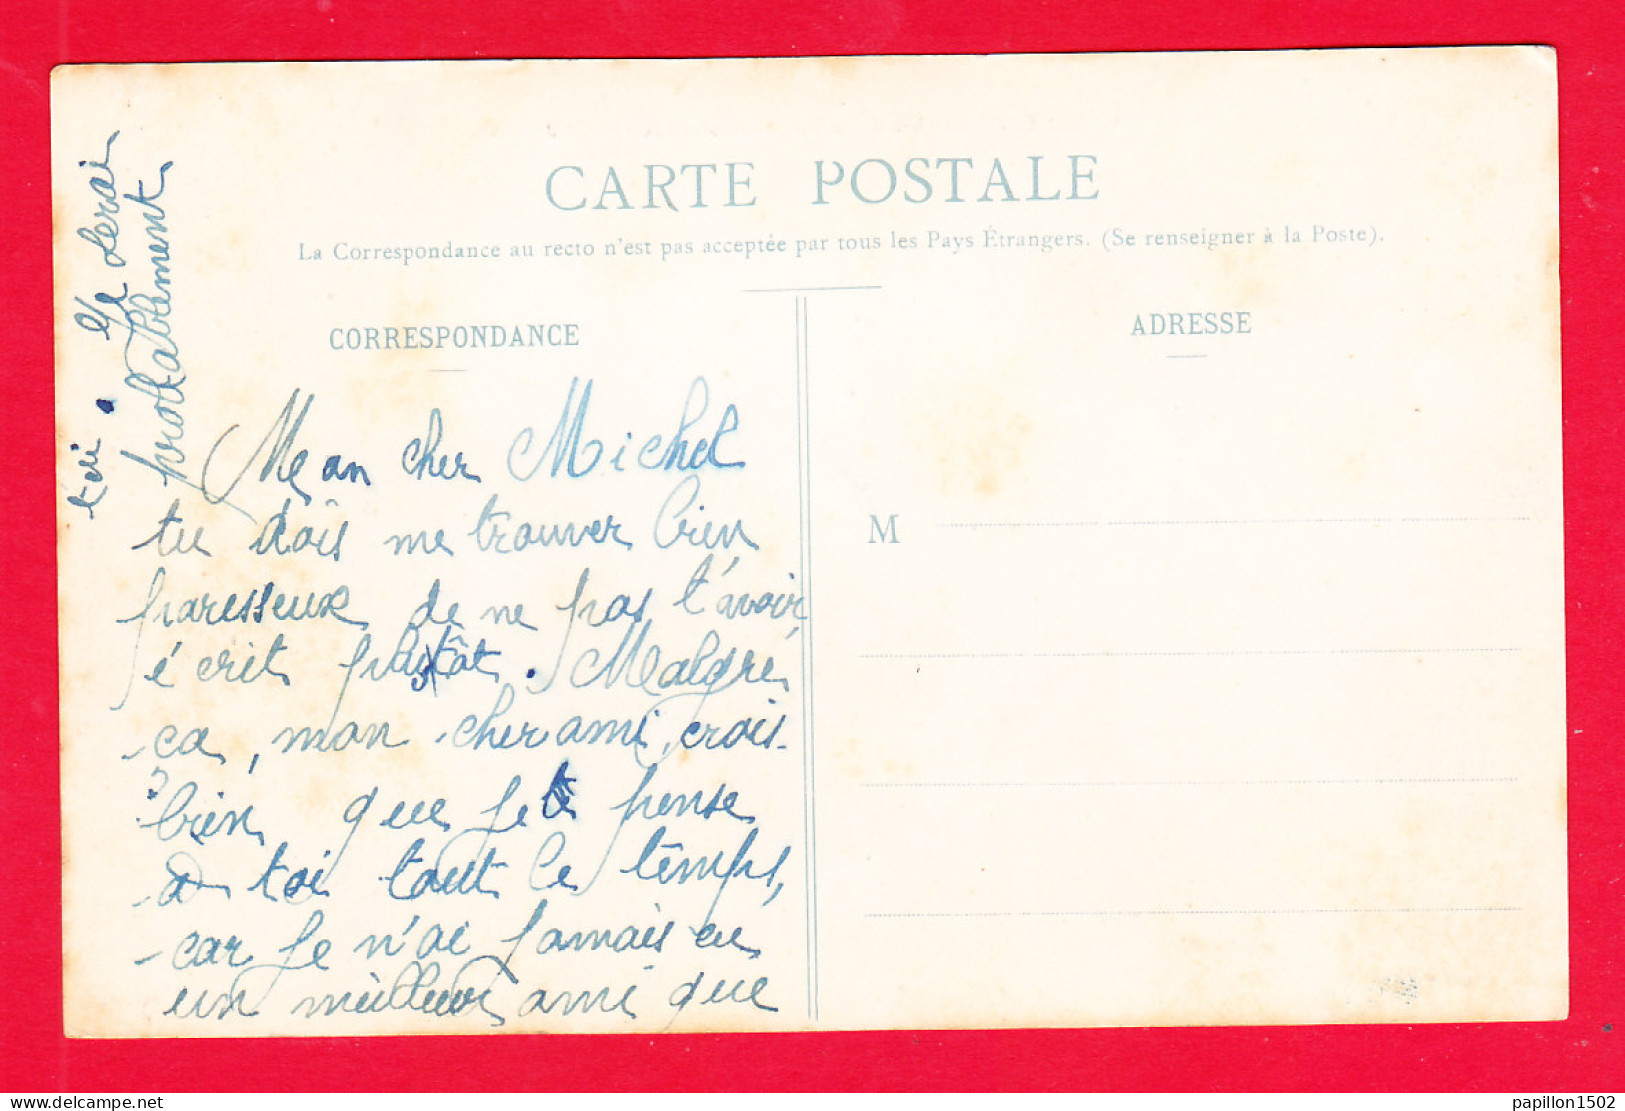 CARTE POSTALE
La Correspondance au recto n'est pas acceptée par tous les Pays Étrangers. (Se renseigner à la Poste).
CORRESPONDANCE
ADRESSE
M
cher Michel
tu dois me trouver bien
paresseux de ne pas t'avoir
écrit plutôt. Malgré
ca, mon cher ami, crois-
bien que je pense
à toi tout le temps,
car je n'ai jamais eu
un meilleur ami que
toi. Je serai
probablement
papillon1502
delcampe.net